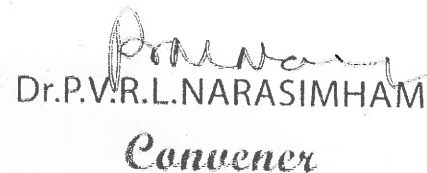 Dr.P.V.R.L.NARASIMHAM
Convener